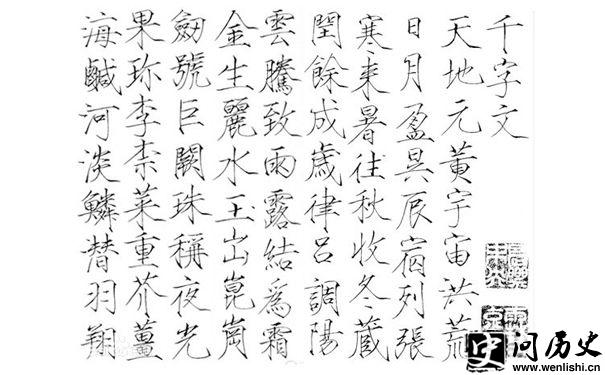 千字文
天地元黃宇宙洪荒
日月盈昃辰宿列張
寒来暑往秋收冬蔵
閏餘成歲律呂調陽
雲騰致雨露結爲霜
金生麗水玉出崑崗
劒號巨闕珠稱夜光
果珎李柰菜重芥薑
海鹹河淡鱗替羽翔
史 问历史
www.wenlishi.cn